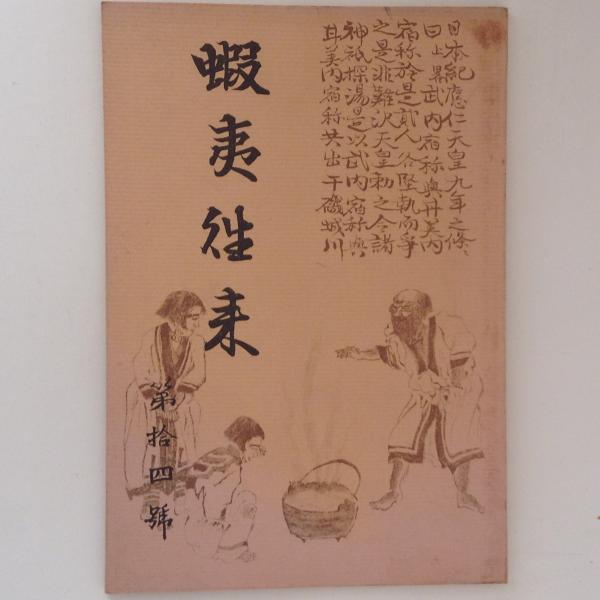 日本紀應仁天皇九年之條、
曰上畧武内宿称與甘美内
宿称於是貳人各堅執而爭
之是非難决天皇勅之令諸
神祇探湯是以武内宿称與
甘美内宿称共出于磯城川
蝦夷往来
第拾四號